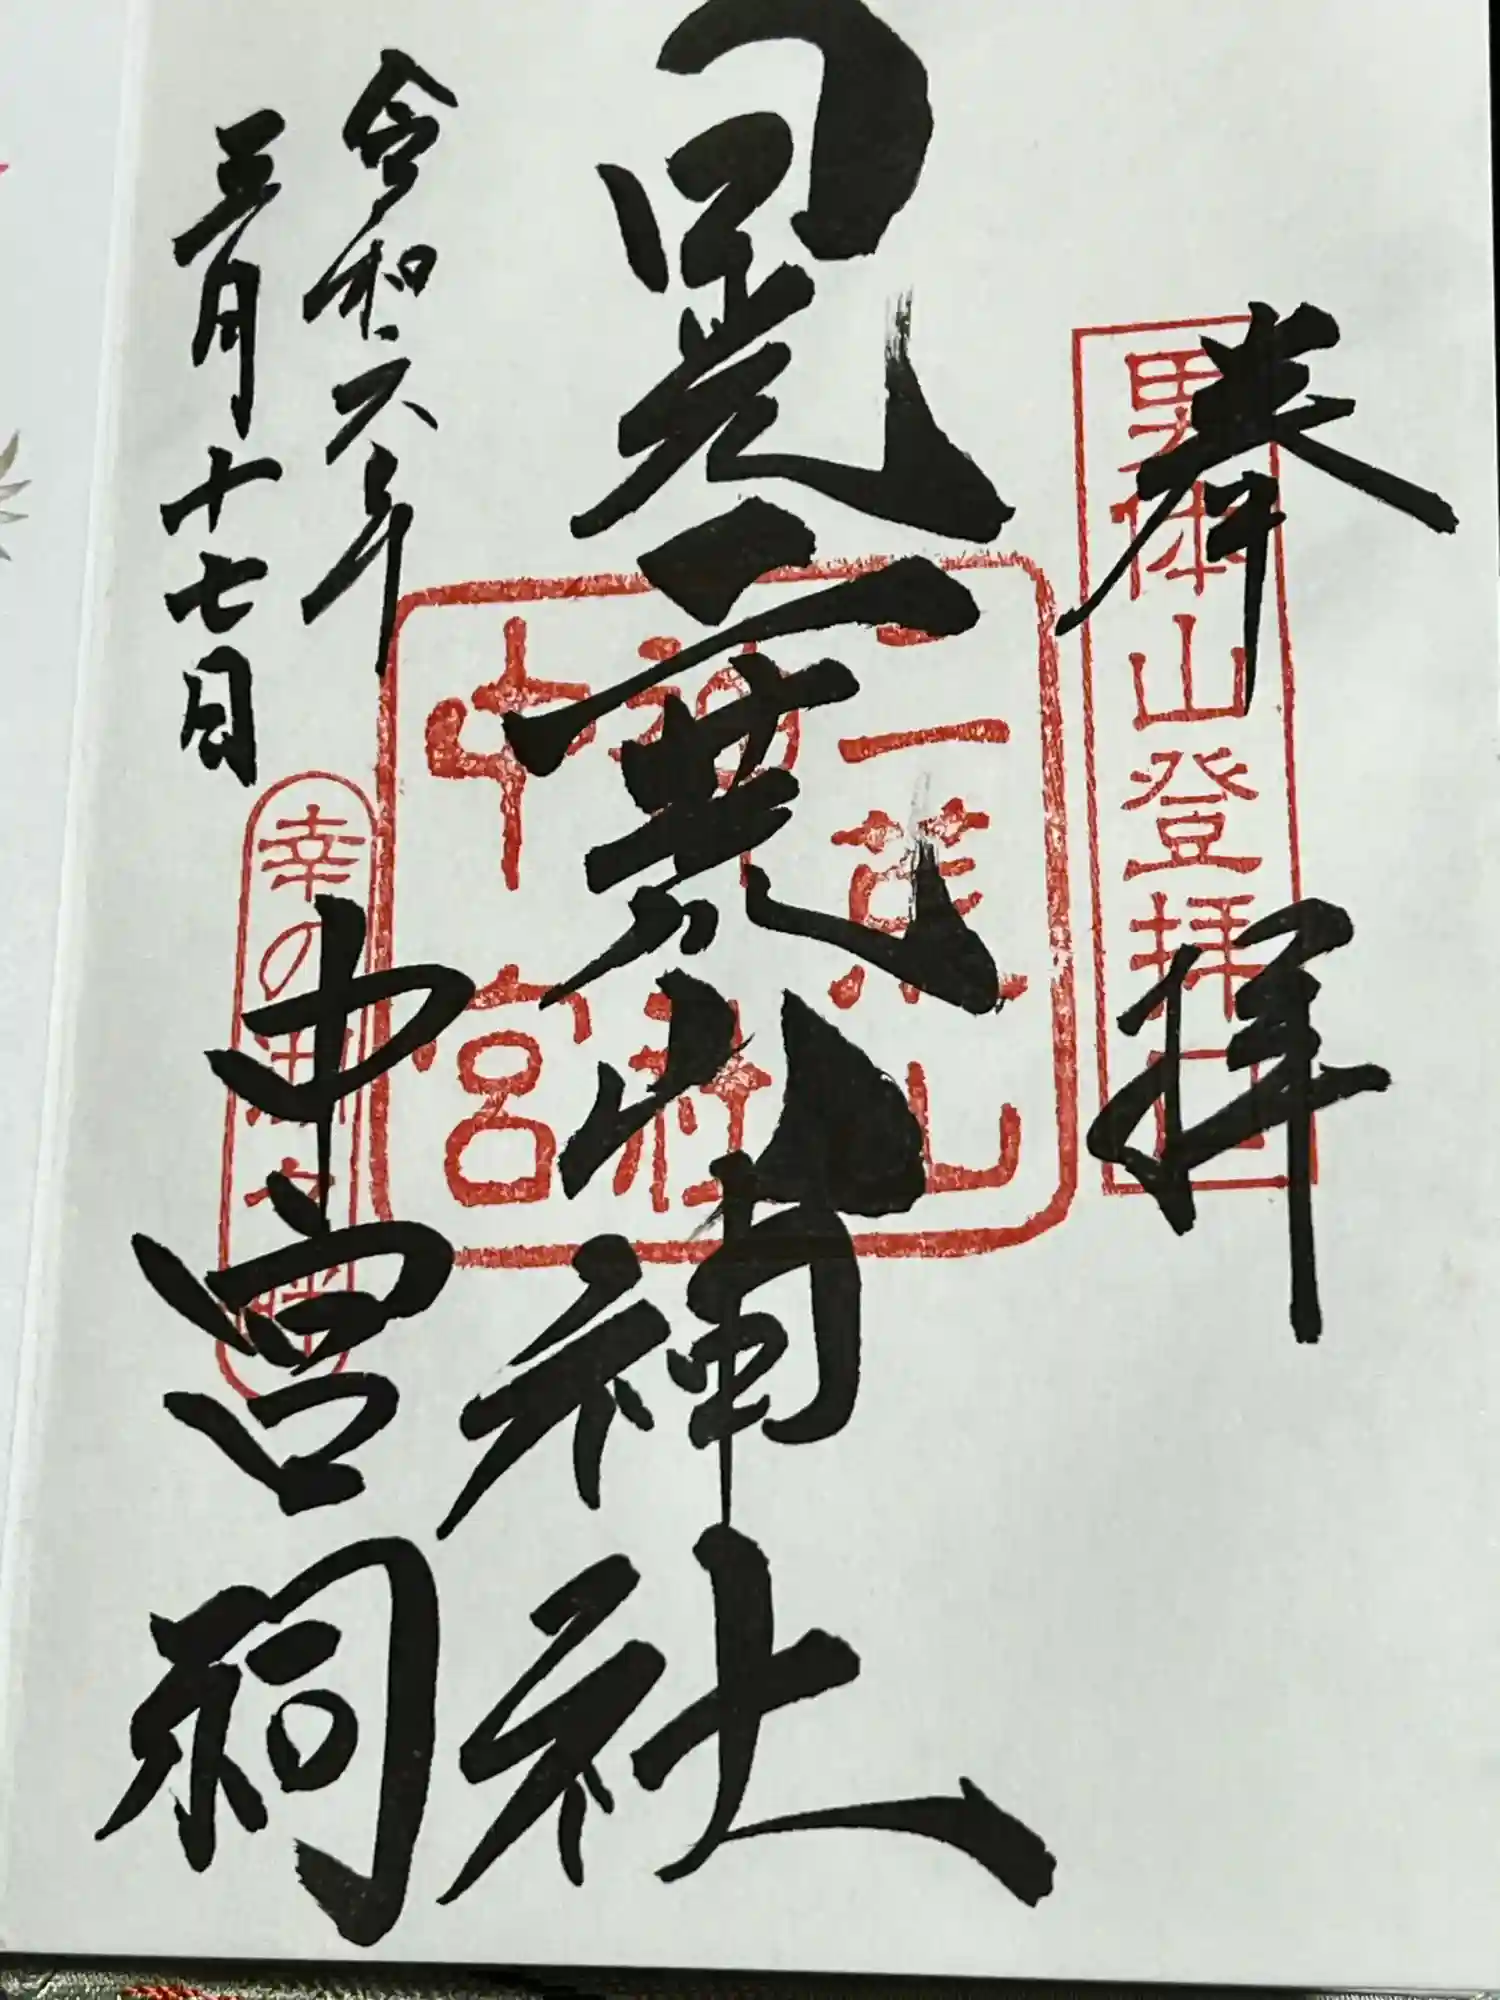 奉拝
男体山登拝口
日光二荒山神社
二荒山
神社
中宮
中宮祠
令和六年
三月十七日
幸の